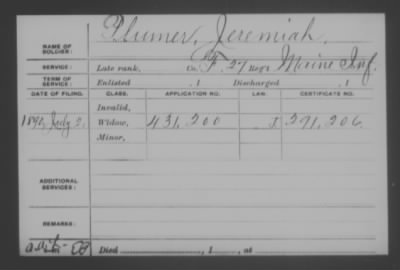 Plumer, Jeremiah.
NAME OF SOLDIER:
SERVICE: Late rank, Co. F, 27 Reg't Maine Inf.
TERM OF SERVICE: Enlisted , 1 Discharged , 1
DATE OF FILING. CLASS. APPLICATION NO. LAW. CERTIFICATE NO.
Invalid,
1890, July 2. Widow, 431,200 291,206
Minor,
ADDITIONAL SERVICES:
REMARKS:
Died , 1 , at